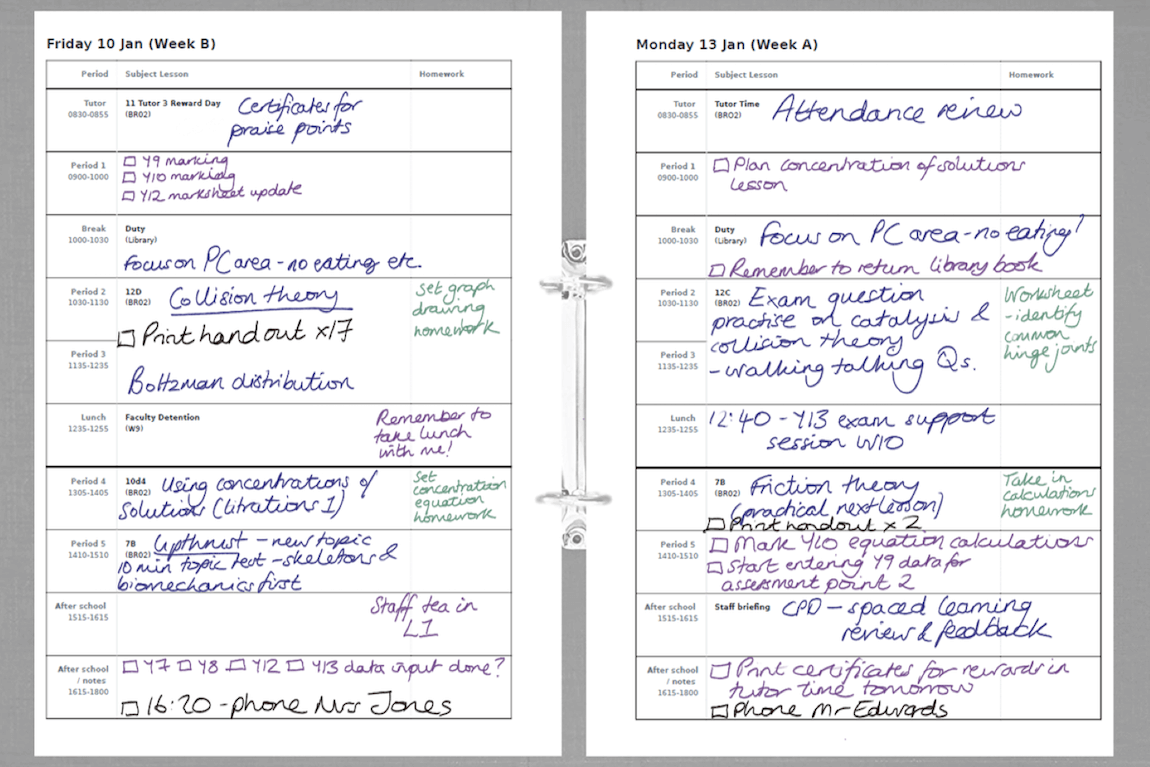 Friday 10 Jan (Week B)
Period Subject Lesson Homework
Tutor 11 Tutor 3 Reward Day Certificates for
0830-0855 (BR02) praise points
Period 1 ☐ Y9 marking
0900-1000 ☐ Y10 marking
☐ Y12 marksheet update
Break Duty
1000-1030 (Library)
Focus on PC area - no eating etc.
Period 2 12D Collision theory Set graph
1030-1130 (BR02) drawing
☐ Print handout x17 homework
Period 3
1135-1235
Boltzman distribution
Lunch Faculty Detention Remember to
1235-1255 (W9) take lunch
with me!
Period 4 10d4 Using concentrations of Set
1305-1405 (BR02) concentration
Solutions (titrations 1) equation
homework
Period 5 7B Upthrust - new topic
1410-1510 (BR02)
10 min topic test - skeletons &
biomechanics first
After school Staff tea in
1515-1615 L1
After school ☐ Y7 ☐ Y8 ☐ Y12 ☐ Y13 data input done?
/ notes
1615-1800 ☐ 16:20 - phone Mrs Jones
Monday 13 Jan (Week A)
Period Subject Lesson Homework
Tutor Tutor Time Attendance review
0830-0855 (BRO2)
Period 1 ☐ Plan concentration of solutions
0900-1000 lesson
Break Duty Focus on PC area - no eating!
1000-1030 (Library)
☐ Remember to return library book
Period 2 12C Exam question Worksheet
1030-1130 (BR02) - identify
practise on catalysis & common
collision theory hinge joints
Period 3 - walking talking Qs.
1135-1235
Lunch 12:40 - Y13 exam support
1235-1255 session W10
Period 4 7B Friction theory Take in
1305-1405 (BR02) calculations
(practical next lesson) homework
☐ Print handout x 2
Period 5 ☐ Mark Y10 equation calculations
1410-1510 ☐ Start entering Y9 data for
assessment point 2
After school Staff briefing CPD - spaced learning
1515-1615 review & feedback
After school ☐ Print certificates for rewards in
/ notes tutor time tomorrow
1615-1800 ☐ Phone Mr Edwards